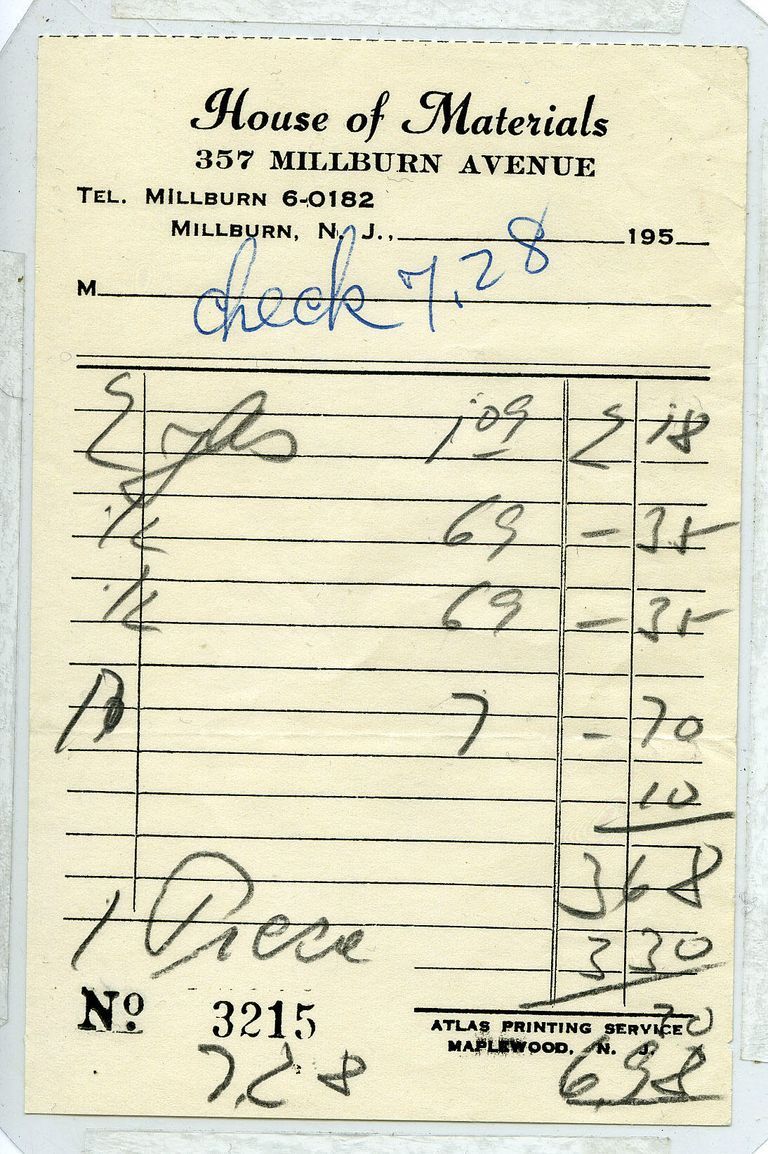 House of Materials
357 MILLBURN AVENUE
TEL. MILLBURN 6-0182
MILLBURN, N. J., 195
M check 7.28
2 yds 1.09 2 18
1/2 69 - 35
1/2 69 - 35
10 7 - 70
10
3 68
1 Piece 3 30
30
Nº 3215
ATLAS PRINTING SERVICE
MAPLEWOOD, N. J.
7.28 6.98